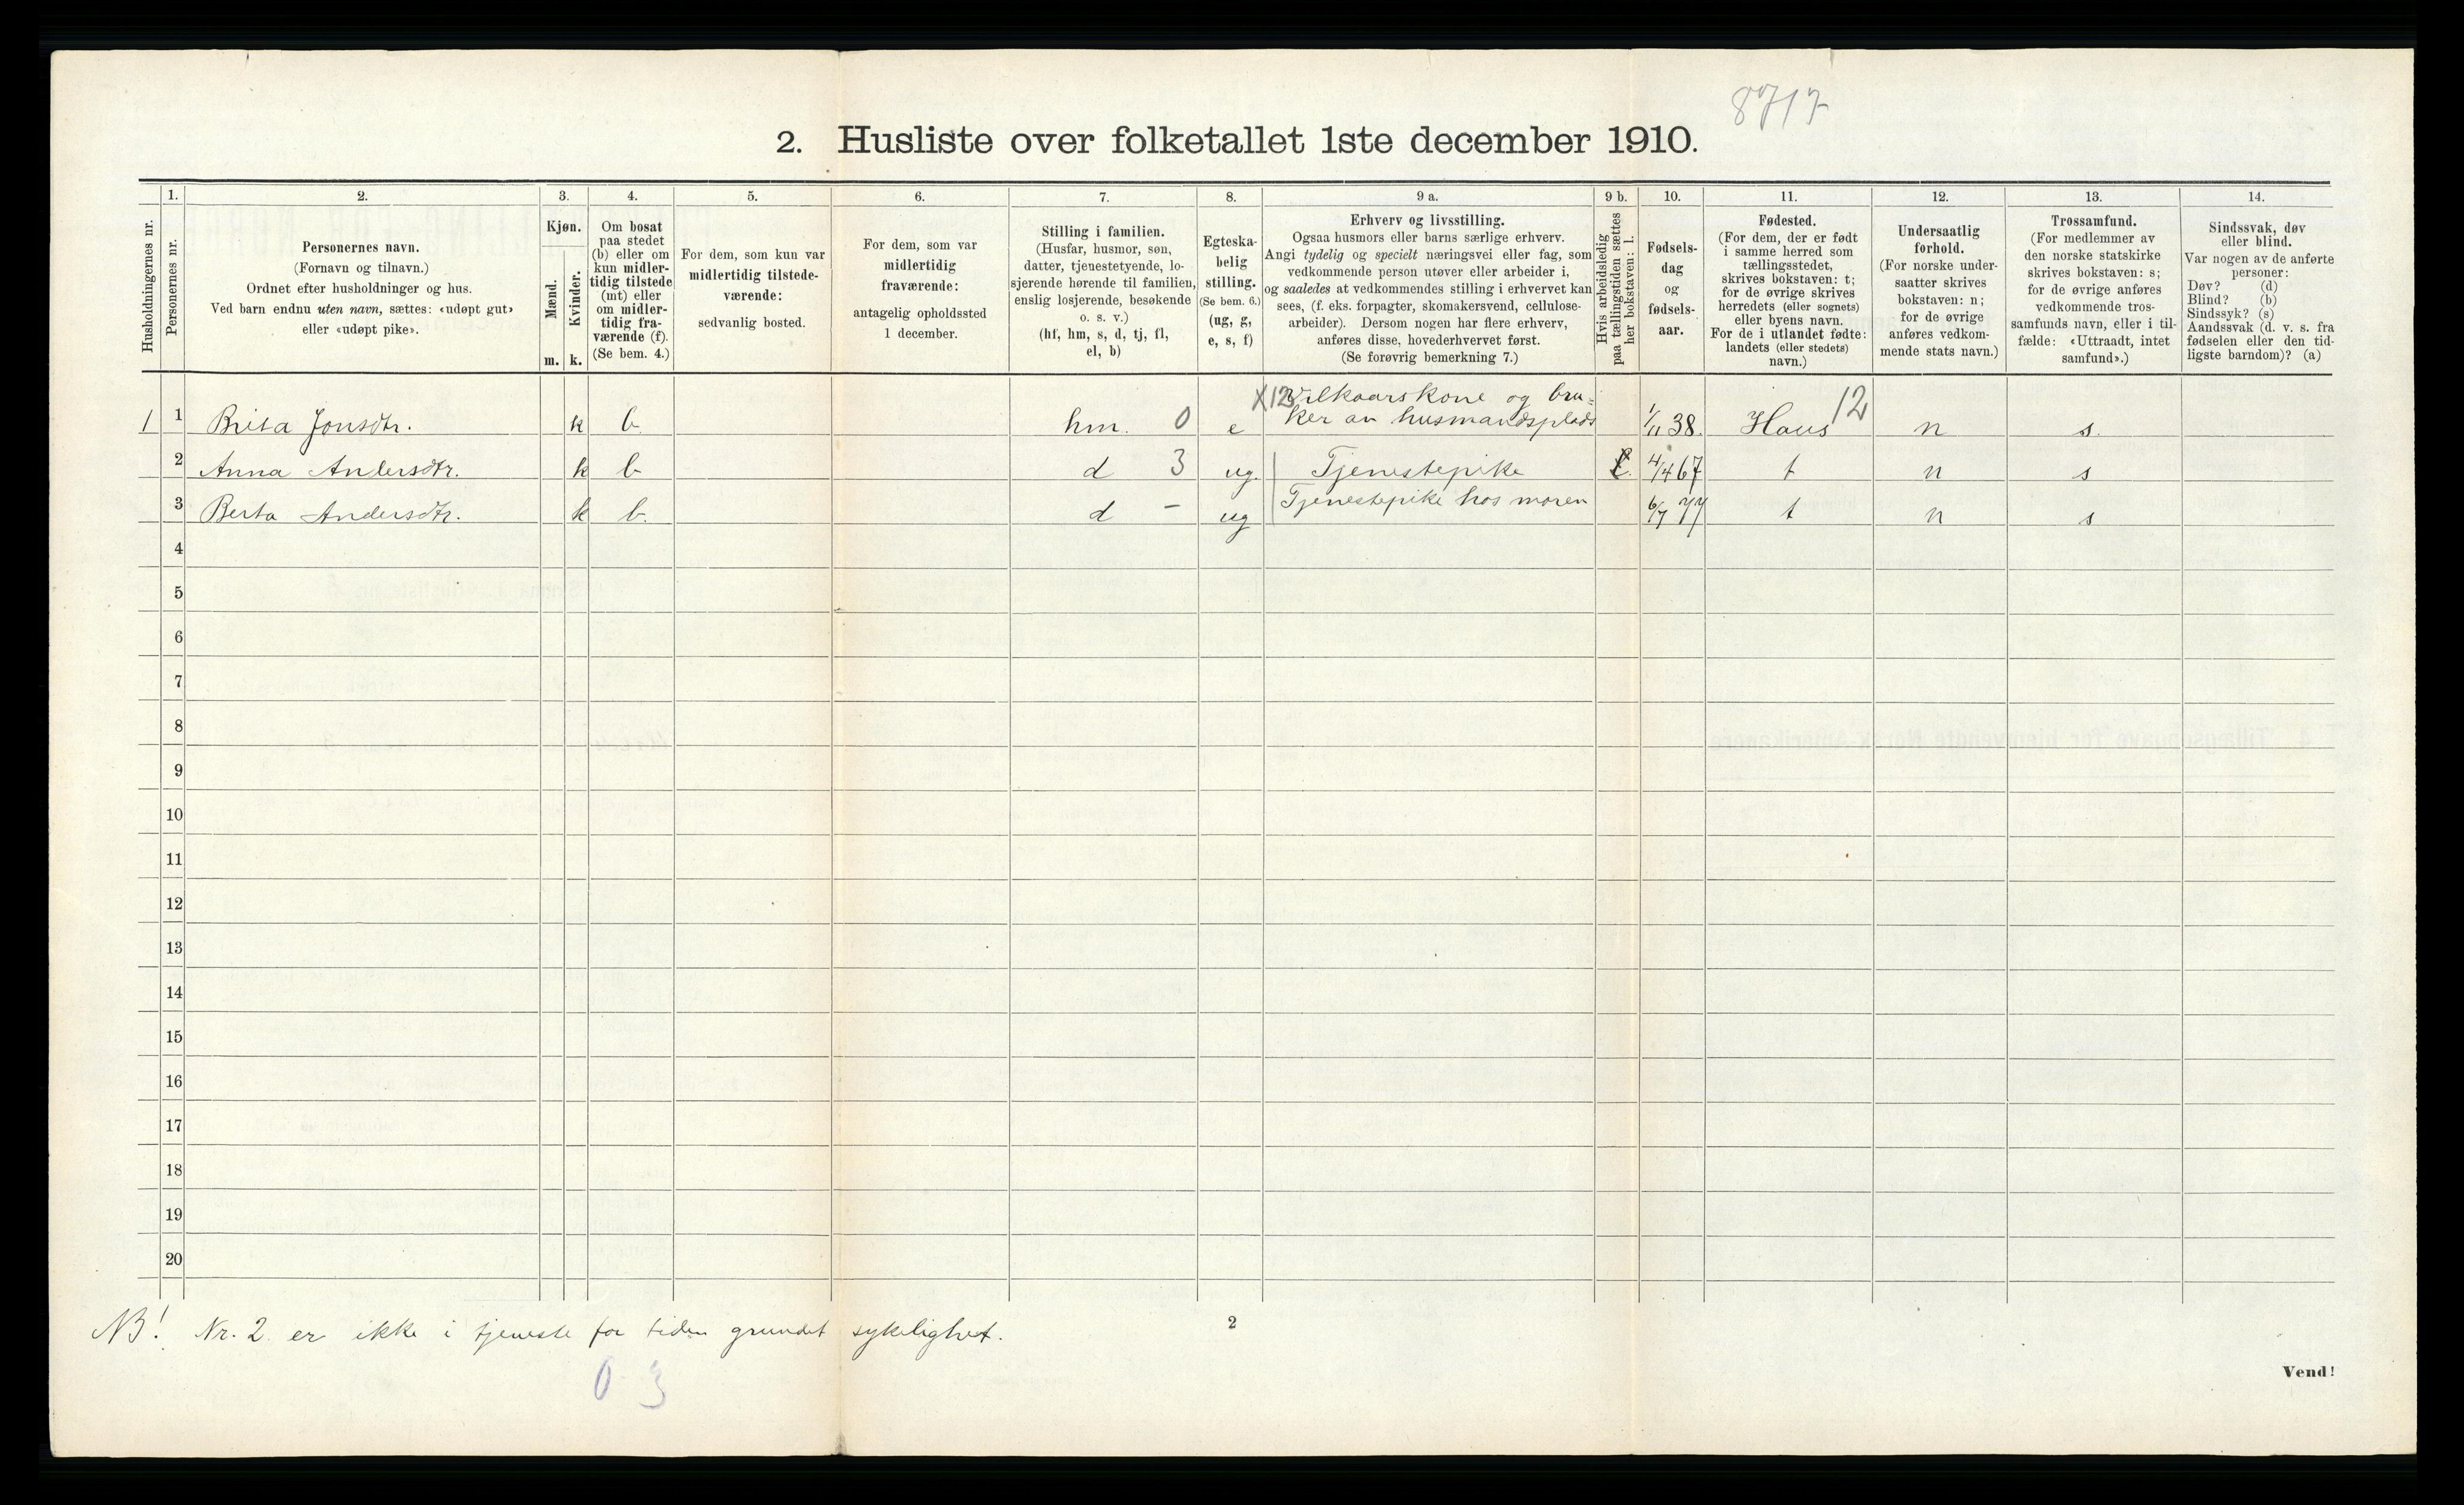 8717
2. Husliste over folketallet 1ste december 1910.
Husholdningernes nr.
1.
Personernes nr.
2.
Personernes navn.
(Fornavn og tilnavn.)
Ordnet efter husholdninger og hus.
Ved barn endnu uten navn, sættes: «udøpt gut»
eller «udøpt pike».
3.
Kjøn.
Mænd.
Kvinder.
m. k.
4.
Om bosat
paa stedet
(b) eller om
kun midler-
tidig tilstede
(mt) eller
om midler-
tidig fra-
værende (f).
(Se bem. 4.)
5.
For dem, som kun var
midlertidig tilstede-
værende:
sedvanlig bosted.
6.
For dem, som var
midlertidig
fraværende:
antagelig opholdssted
1 december.
7.
Stilling i familien.
(Husfar, husmor, søn,
datter, tjenestetyende, lo-
sjerende hørende til familien,
enslig losjerende, besøkende
o. s. v.)
(hf, hm, s, d, tj, fl,
el, b)
8.
Egteska-
belig
stilling.
(Se bem. 6.)
(ug, g,
e, s, f)
9 a.
Erhverv og livsstilling.
Ogsaa husmors eller barns særlige erhverv.
Angi tydelig og specielt næringsvei eller fag, som
vedkommende person utøver eller arbeider i,
og saaledes at vedkommendes stilling i erhvervet kan
sees, (f. eks. forpagter, skomakersvend, cellulose-
arbeider). Dersom nogen har flere erhverv,
anføres disse, hovederhvervet først.
(Se forøvrig bemerkning 7.)
9 b.
Hvis arbeidsledig
paa tællingstiden sættes
her bokstaven: l.
10.
Fødsels-
dag
og
fødsels-
aar.
11.
Fødested.
(For dem, der er født
i samme herred som
tællingsstedet,
skrives bokstaven: t;
for de øvrige skrives
herredets (eller sognets)
eller byens navn.
For de i utlandet fødte:
landets (eller stedets)
navn.)
12.
Undersaatlig
forhold.
(For norske under-
saatter skrives
bokstaven: n;
for de øvrige
anføres vedkom-
mende stats navn.)
13.
Trossamfund.
(For medlemmer av
den norske statskirke
skrives bokstaven: s;
for de øvrige anføres
vedkommende tros-
samfunds navn, eller i til-
fælde: «Uttraadt, intet
samfund».)
14.
Sindssvak, døv
eller blind.
Var nogen av de anførte
personer:
Døv? (d)
Blind? (b)
Sindssyk? (s)
Aandssvak (d. v. s. fra
fødselen eller den tid-
ligste barndom)? (a)
1 1 Brita Jonsdtr. k b hm. 0 e X12 Vilkaarskone og bru-
ker av husmandsplads 1/11 38. Haus 12 n s.
2 Anna Andersdtr. k b d 3 ug. Tjenestepike l. 4/4 67 t n s
3 Berta Andersdtr. k b. d - ug Tjenestepike hos moren 6/7 77 t n s
4
5
6
7
8
9
10
11
12
13
14
15
16
17
18
19
20
NB! Nr. 2 er ikke i tjeneste for tiden grundet sykelighet.
2
0 3
Vend!